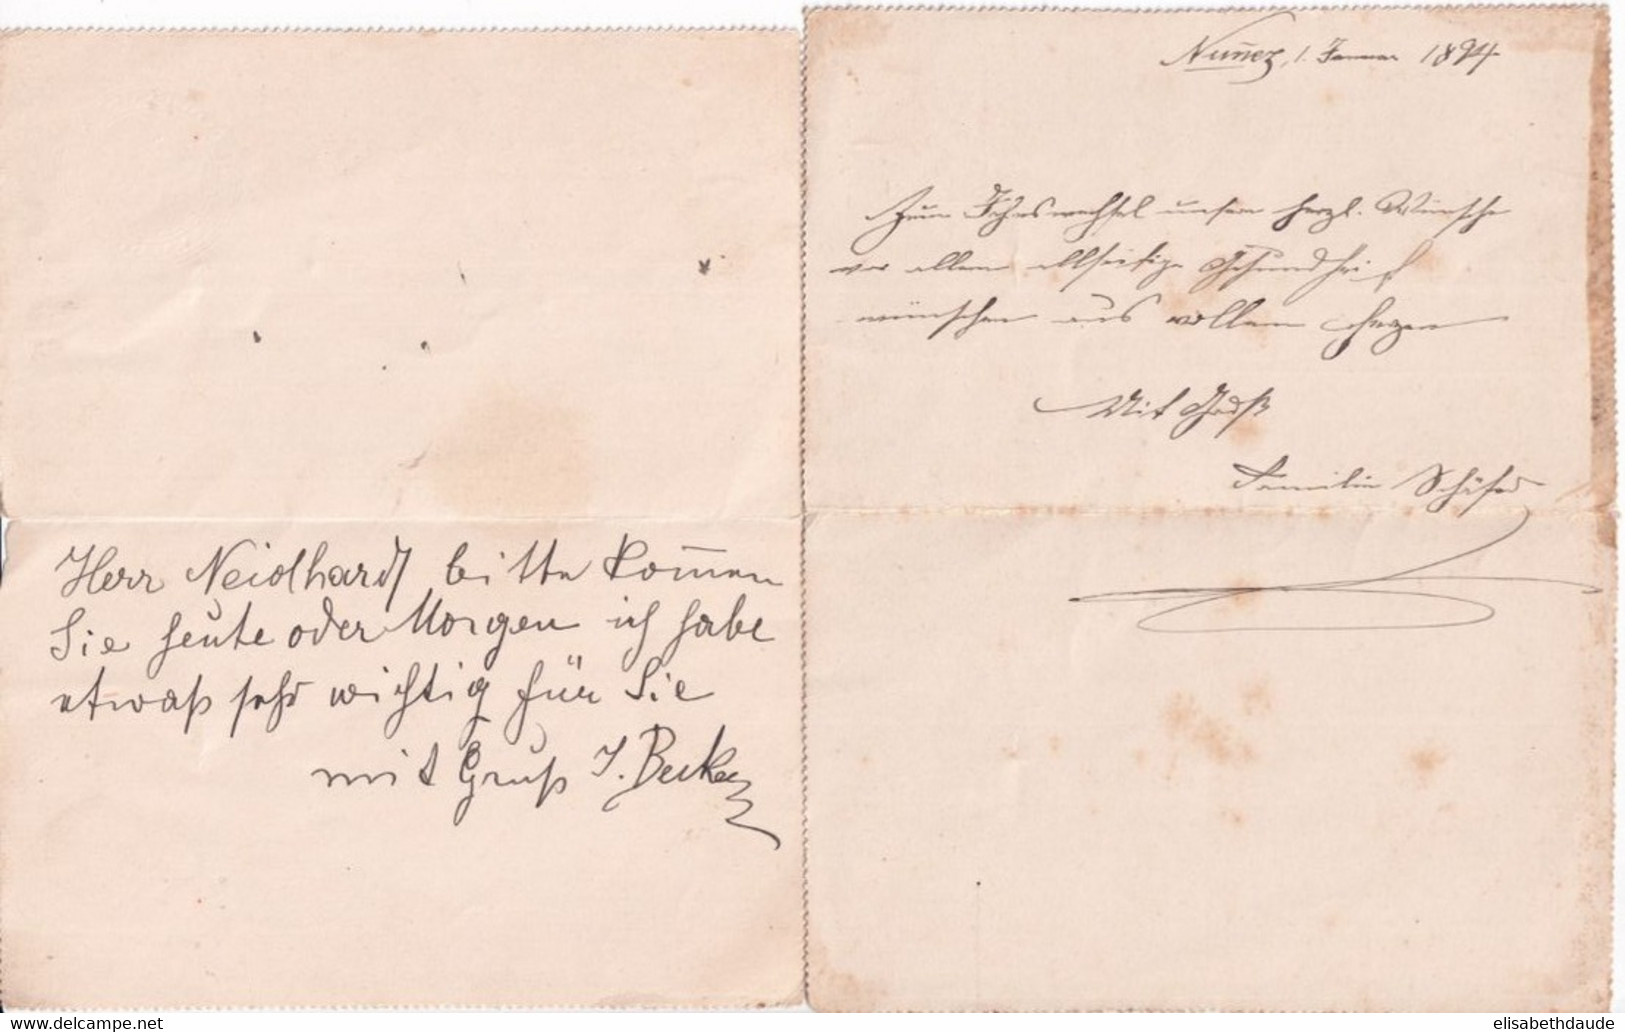 Herr Neidhardt bitte kom̅en
Sie heute oder Morgen ich habe
etwaß sehr wichtig für Sie
mit Gruß J. Becker
Nuñez, 1. Januar 1894
Zum Jahreswechsel unsere herzl. Wünsche
vor allem allseitige Gesundheit
wünschen aus vollem Herzen
Mit Gruß
Familie Schäfer
www.delcampe.net
elisabethdaude